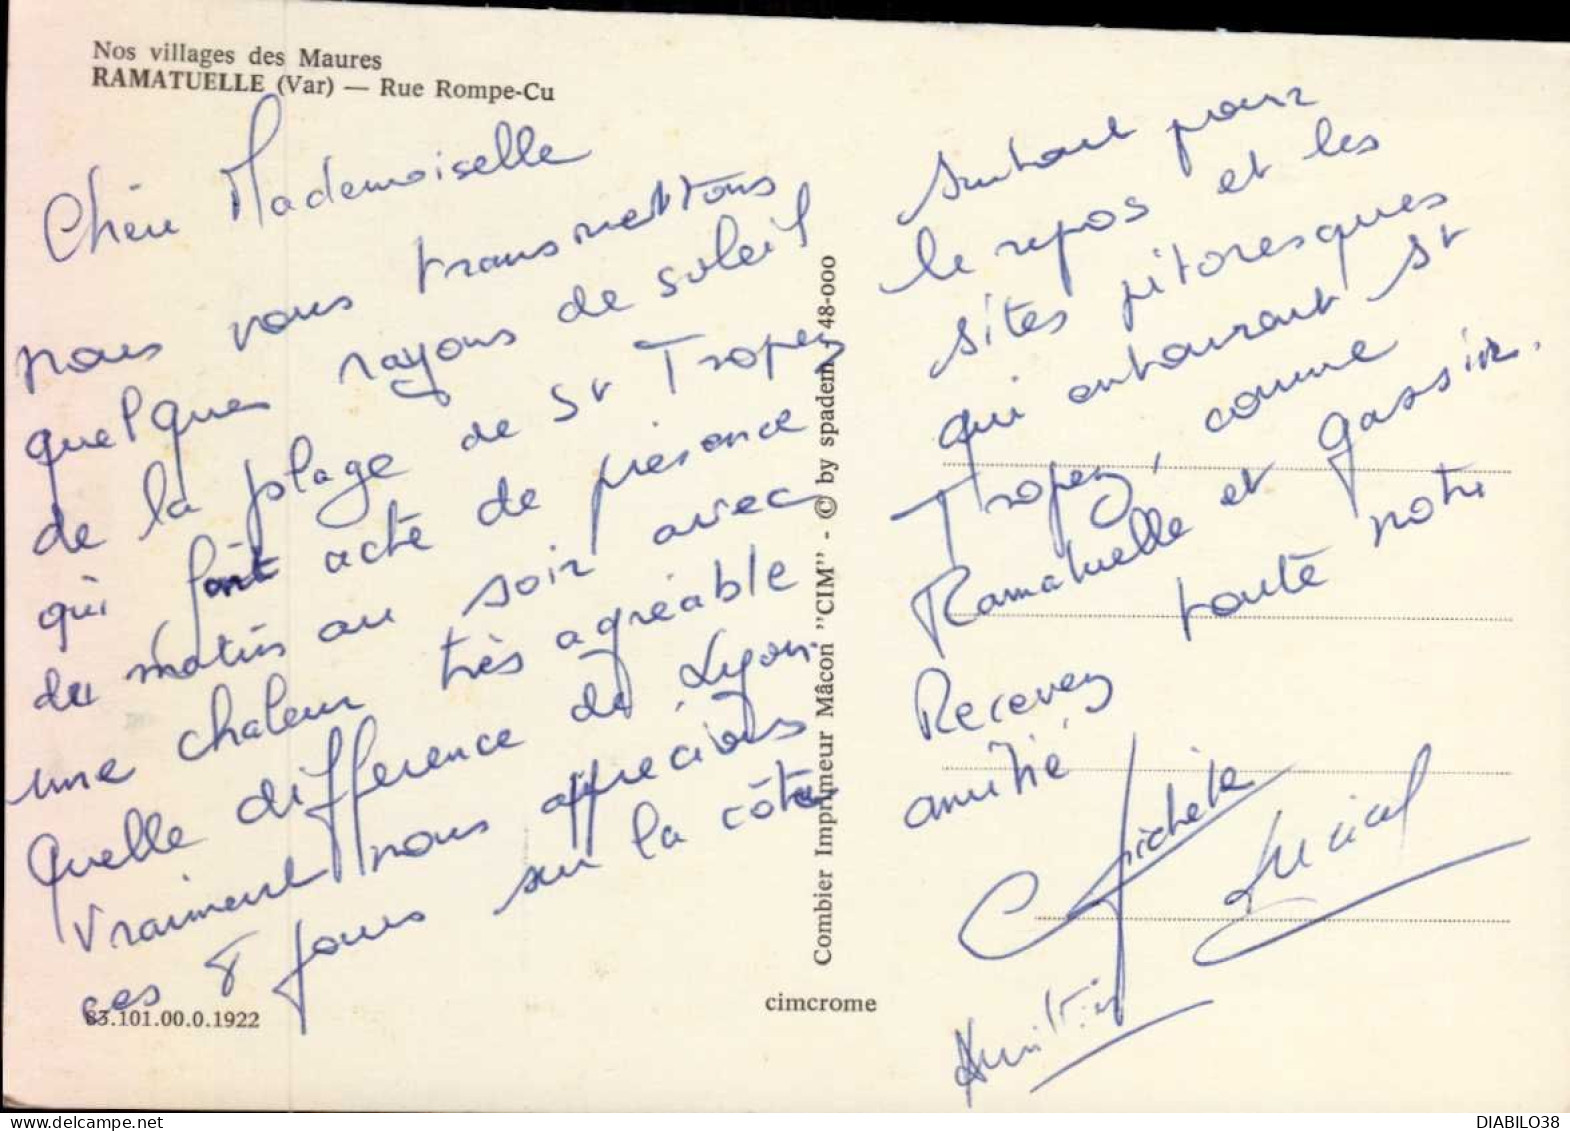 Nos villages des Maures
RAMATUELLE (Var) — Rue Rompe-Cu
Chère Mademoiselle
nous vous transmettons
quelques rayons de soleil
de la plage de St Tropez
qui font acte de présence
du matin au soir avec
une chaleur très agréable
Quelle différence de Lyon.
Vraiment nous apprécions
ces 8 jours sur la côte
surtout pour
le repos et les
sites pitoresques
qui entourent St
Tropez, comme
Ramatuelle et Gassin.
Recevez toute notre
amitié
Michele
83.101.00.0.1922
cimcrome
Combier Imprimeur Mâcon "CIM" - © by spadem 48-000
DIABILO38